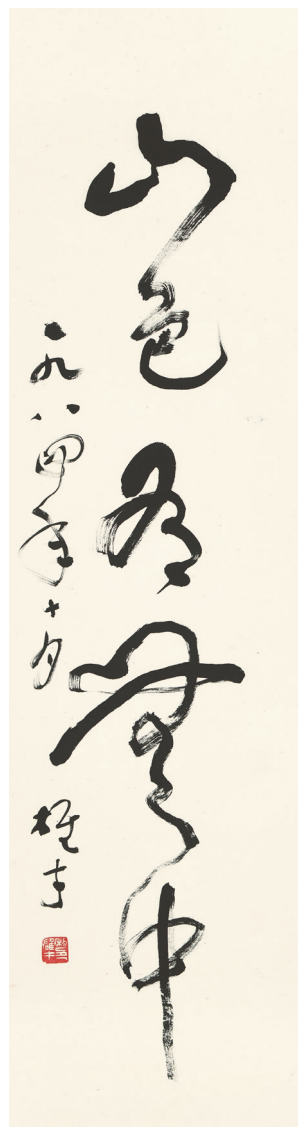 山色有無中
一九八四年十月
雄才